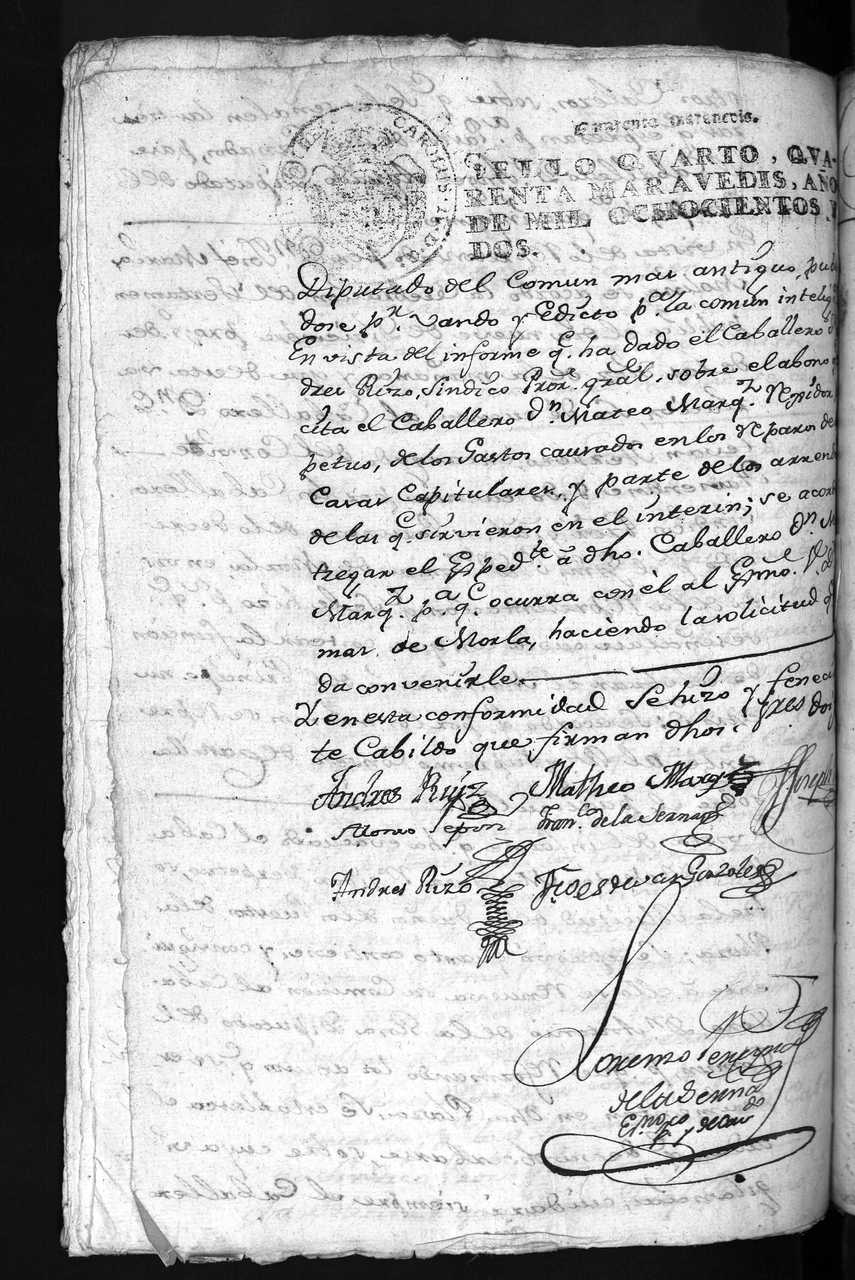 Quarenta maravedis.
SELLO QVARTO, QVA-
RENTA MARAVEDIS, AÑO
DE MIL OCHOCIENTOS Y
DOS.
CAROLUS IV D G
Diputado del Comun mas antiguo, pu
dose pr. Vando y Edicto pa. la comun intelig
En vista del informe q. ha dado el Caballero
dres Rizo, Sindico Pror. gral. sobre el abono q
cita el Caballero Dn. Mateo Marqz. Regidor
petuo, de los Gastos causados en los Reparos de
Casas Capitulares, y parte de los arrend
de las q. sirvieron en el interin; se acor
tregar el Espedte. á dho. Caballero Dn. M
Marqz. pa. q. ocurra con él al Exmo. Sr.
mas de Morla, haciendo la solicitud q
da convenirle.
Y en esta conformidad se hizo y fenec
te Cabildo que firman dhos. Sres. doy
Andres Ruiz Matheo Marqz
Alfonso Sepon Franco. de la Serna
Andres Rizo Gonzalez
Lorenzo
de la Serna